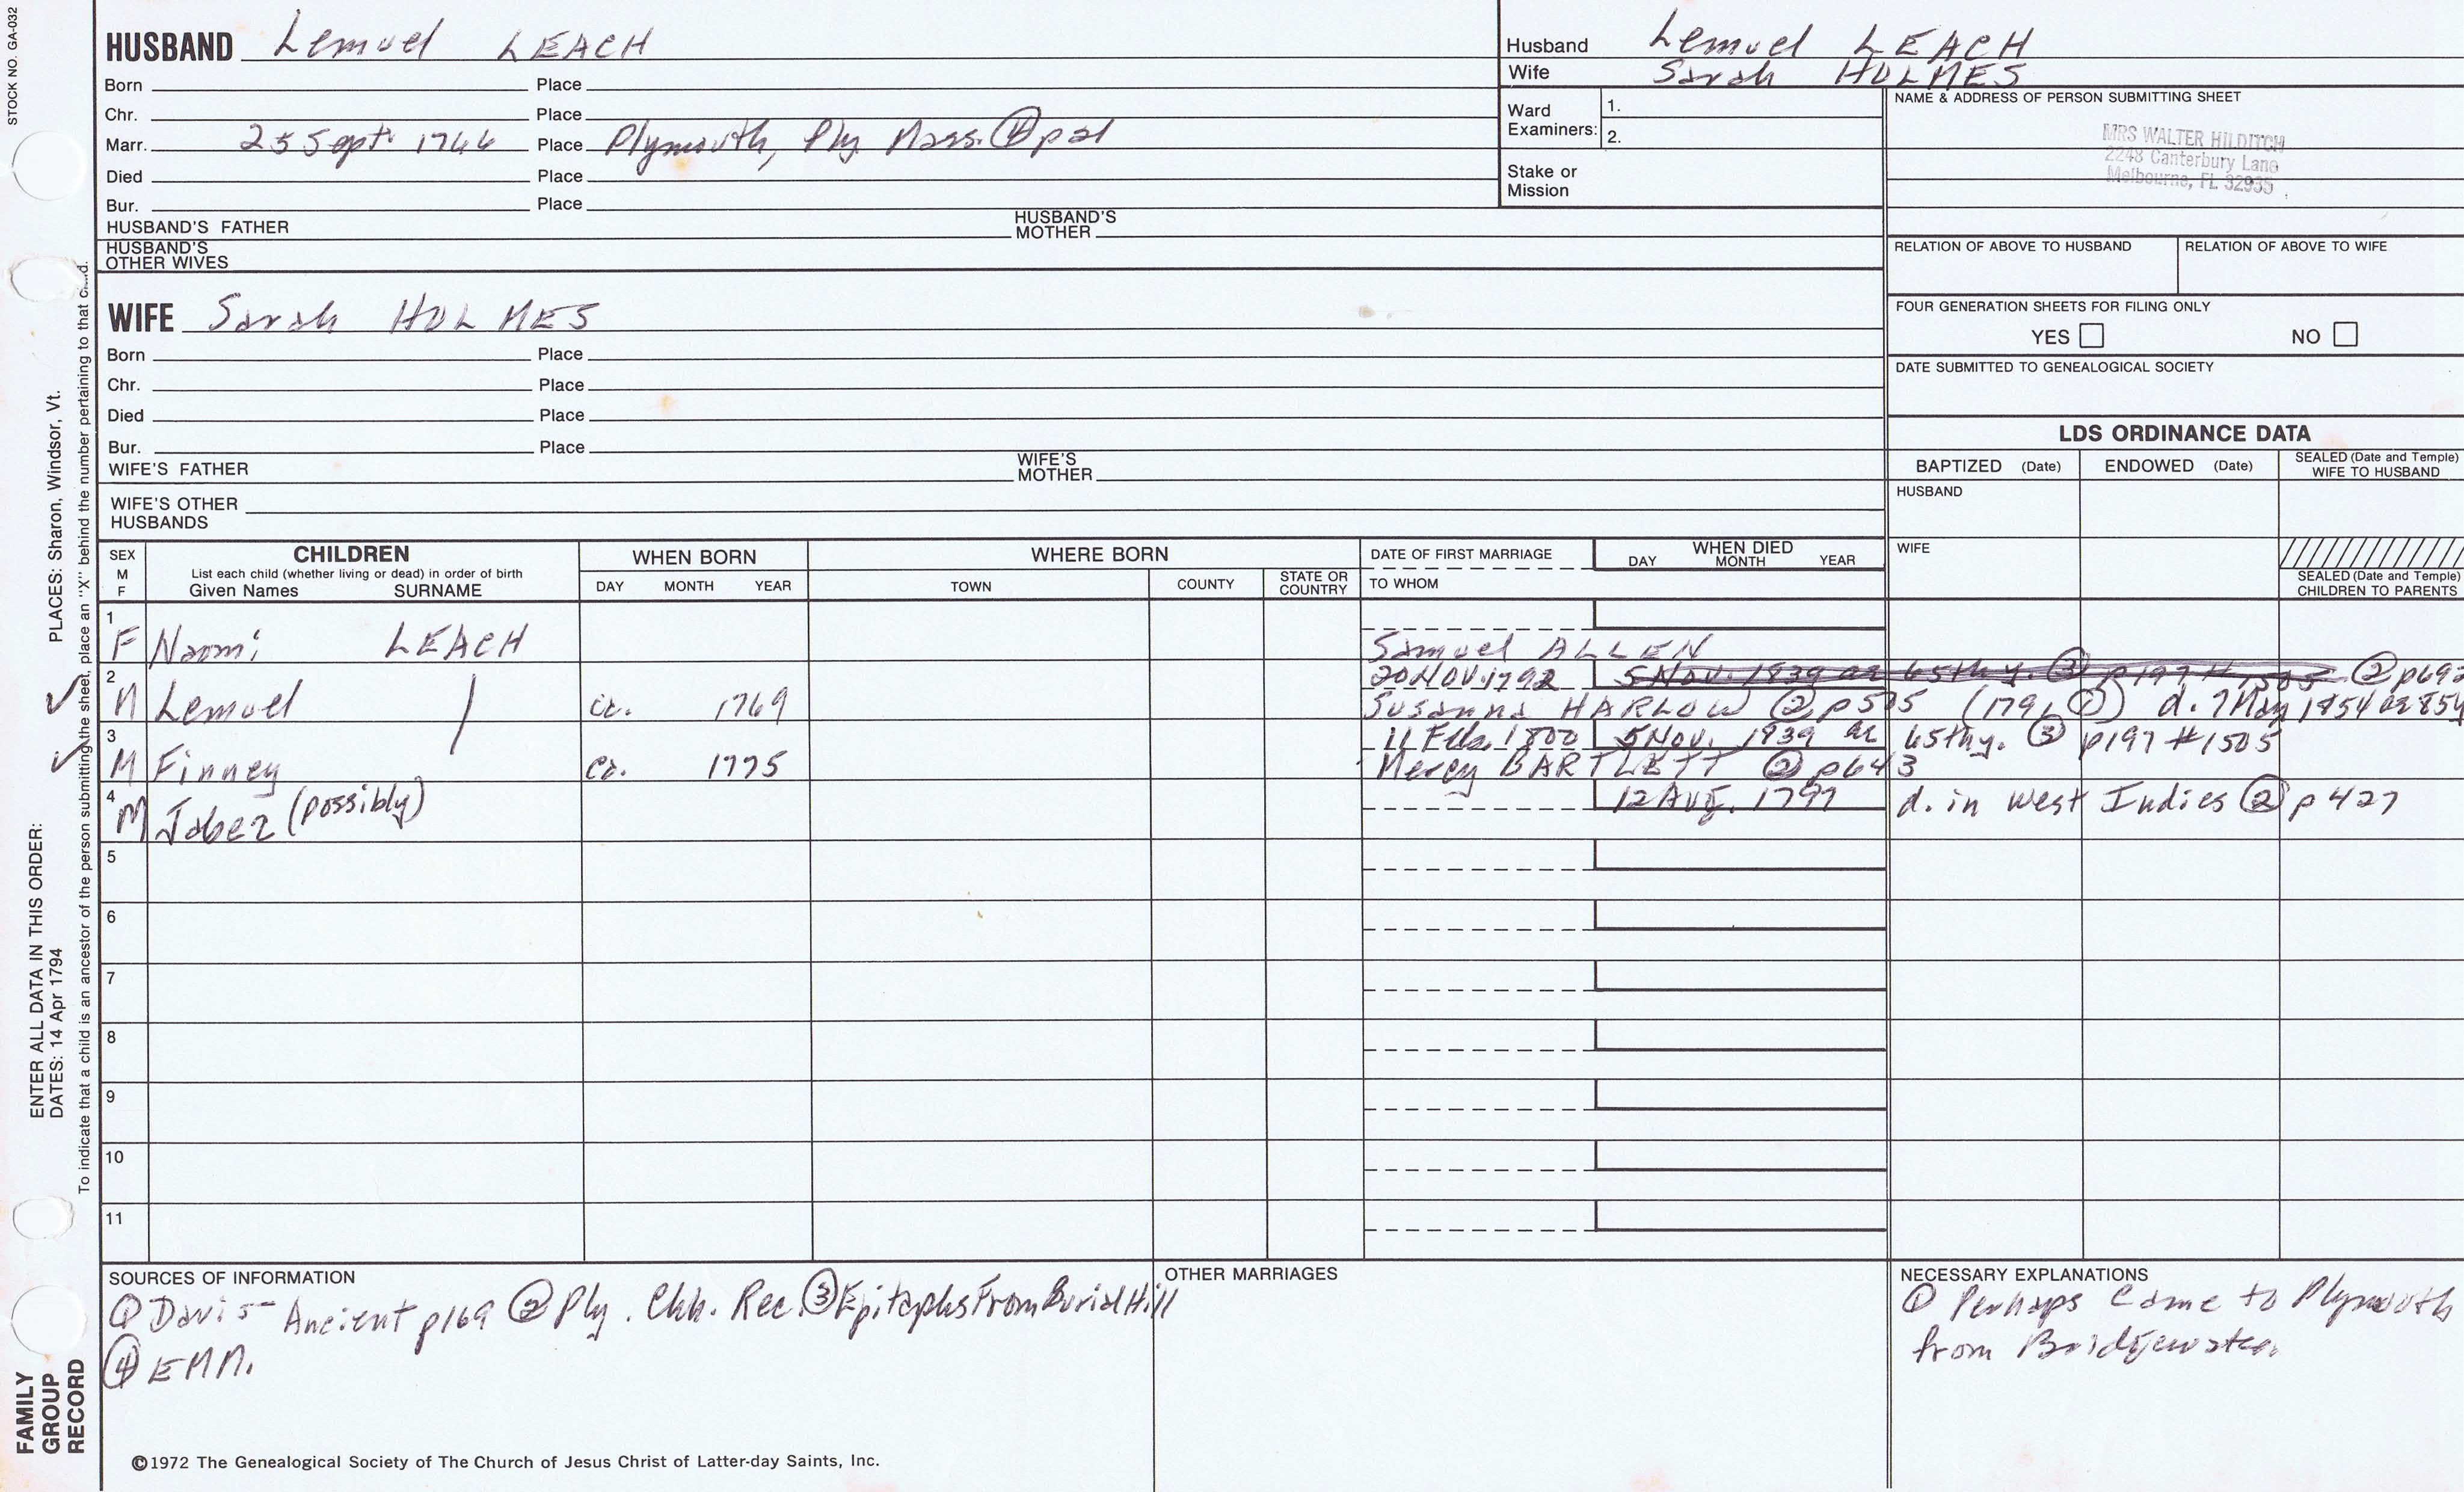 STOCK NO. GA-032
HUSBAND Lemuel LEACH
Born Place
Chr. Place
Marr. 25 Sept. 1766 Place Plymouth, Ply. Mass. ④ p21
Died Place
Bur. Place
HUSBAND'S FATHER HUSBAND'S MOTHER
HUSBAND'S OTHER WIVES
Husband Lemuel LEACH
Wife Sarah HOLMES
Ward Examiners: 1.
2.
Stake or Mission
NAME & ADDRESS OF PERSON SUBMITTING SHEET
MRS WALTER HILDITCH
2248 Canterbury Lane
Melbourne, FL 32935
RELATION OF ABOVE TO HUSBAND RELATION OF ABOVE TO WIFE
FOUR GENERATION SHEETS FOR FILING ONLY
YES NO
DATE SUBMITTED TO GENEALOGICAL SOCIETY
WIFE Sarah HOLMES
Born Place
Chr. Place
Died Place
Bur. Place
WIFE'S FATHER WIFE'S MOTHER
WIFE'S OTHER HUSBANDS
LDS ORDINANCE DATA
BAPTIZED (Date) ENDOWED (Date) SEALED (Date and Temple) WIFE TO HUSBAND
HUSBAND
WIFE
SEALED (Date and Temple) CHILDREN TO PARENTS
SEX M F
CHILDREN
List each child (whether living or dead) in order of birth
Given Names SURNAME
WHEN BORN
DAY MONTH YEAR
WHERE BORN
TOWN COUNTY STATE OR COUNTRY
DATE OF FIRST MARRIAGE
TO WHOM
WHEN DIED
DAY MONTH YEAR
1 F Naomi LEACH Samuel ALLEN
20 NOV. 1792 5 Nov. 1839 ae 65thy. ③ p197 # 1505 ② p692
2 M Lemuel / ca. 1769 Susanna HARLOW ② p505 d. 7 May 1854
11 Feb. 1800 5 Nov. 1839 ae 65thy. ③ p197 #1505
3 M Finney ca. 1775 Mercy BARTLETT ② p643
4 M Jabez (possibly) 12 Aug. 1797 d. in West Indies ② p427
5
6
7
8
9
10
11
SOURCES OF INFORMATION
① Davis- Ancient p169 ② Ply. Chh. Rec. ③ Epitaphs From Burial Hill
④ EMM.
OTHER MARRIAGES
NECESSARY EXPLANATIONS
① Perhaps came to Plymouth
from Bridgewater
©1972 The Genealogical Society of The Church of Jesus Christ of Latter-day Saints, Inc.
FAMILY GROUP RECORD
ENTER ALL DATA IN THIS ORDER:
DATES: 14 Apr 1794 PLACES: Sharon, Windsor, Vt.
To indicate that a child is an ancestor of the person submitting the sheet, place an "X" behind the number pertaining to that child.